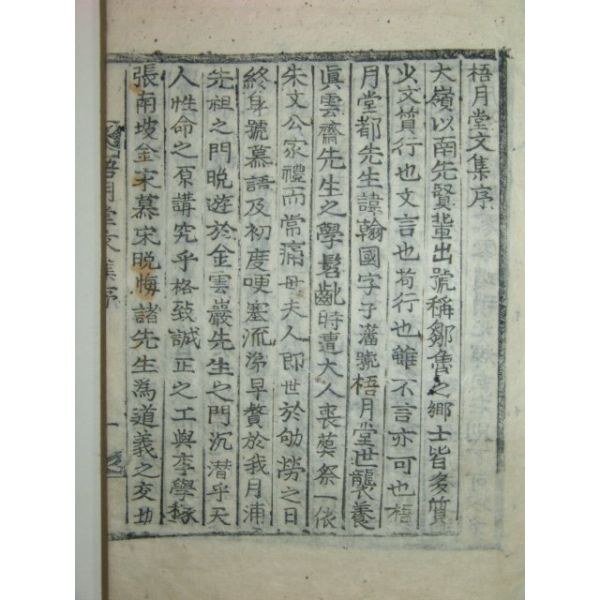 梧月堂文集序
大嶺以南先賢輩出號稱鄒魯之鄉士皆多質
少文質行也文言也苟行也雖不言亦可也梧
月堂都先生諱翰國字子瀋號梧月堂世襲養
眞雲齋先生之學髫齔時遭大人喪葬祭一依
朱文公家禮而常痛母夫人卽世於劬勞之日
終身號慕語及初度哽塞流涕早贅於我月浦
先祖之門晩遊於金雲巖先生之門沉潛乎天
人性命之原講究乎格致誠正之工與李學
張南坡金宋慕宋晩悔諸先生爲道義之交
梧月堂文集序
一